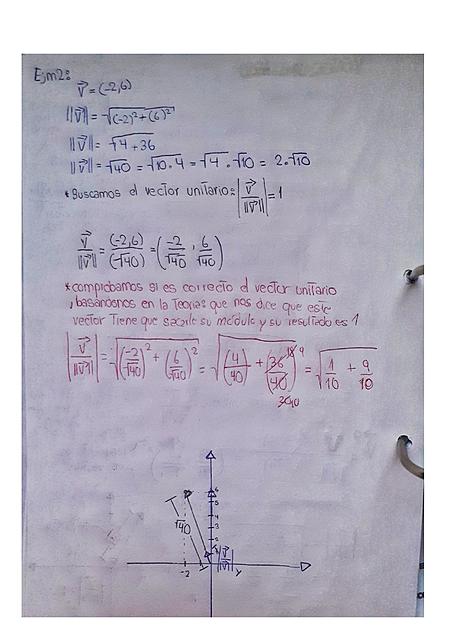 Ejm2:
v⃗ = (-2,6)
||v⃗|| = √(-2)² + (6)²
||v⃗|| = √4+36
||v⃗|| = √40 = √10.4 = √4 . √10 = 2.√10
* Buscamos el vector unitario = |v⃗/||v⃗||| = 1
v⃗/||v⃗|| = (-2,6)/(√40) = (-2/√40 , 6/√40)
* comprobamos si es correcto el vector unitario
, basándonos en la Teorías que nos dice que este
vector Tiene que sacarle su módulo y su resultado es 1
|v⃗/||v⃗||| = √(-2/√40)² + (6/√40)² = √(4/40) + (36/40) 18 9 = √1/10 + 9/10
10
6
5
4
3
√40
-2